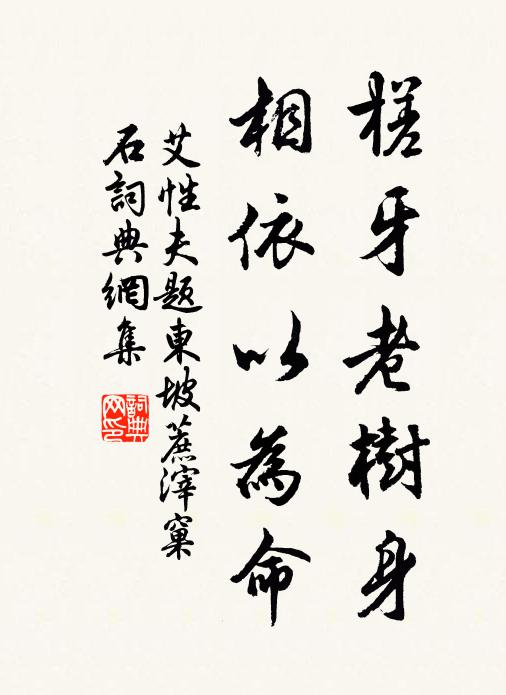 槎牙老樹身
相依以為命
艾性夫題東坡蔗滓窠
石詞典網集
詞典
网印